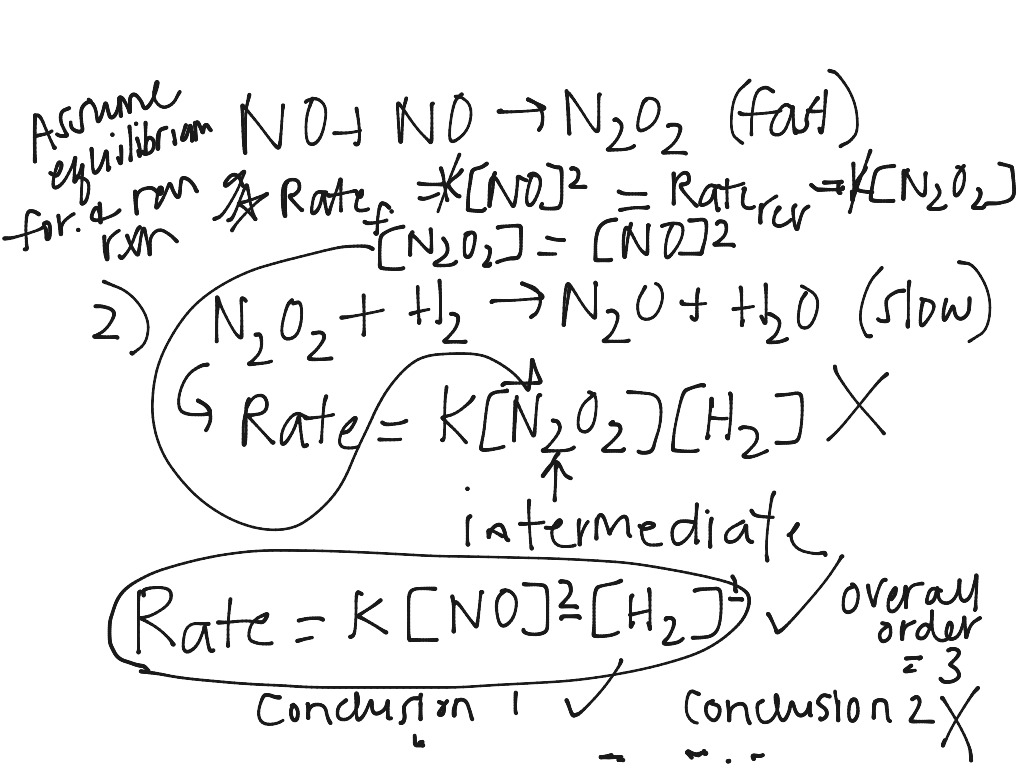 Assume equilibrium for a rev rxn
NO + NO → N₂O₂ (fast)
Rate_f = K[NO]² = Rate_rev = K[N₂O₂]
[N₂O₂] = [NO]²
2) N₂O₂ + H₂ → N₂O + H₂O (slow)
Rate = K[N₂O₂][H₂] X
↑
intermediate
Rate = K[NO]²[H₂]¹ ✓
overall order = 3
Conclusion 1 ✓
Conclusion 2 X